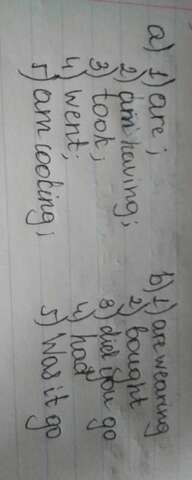 a) 1) are;
2) am having;
3) took;
4) went;
5) am cooking;
b) 1) are wearing
2) bought
3) did you go
4) had
5) Was it go